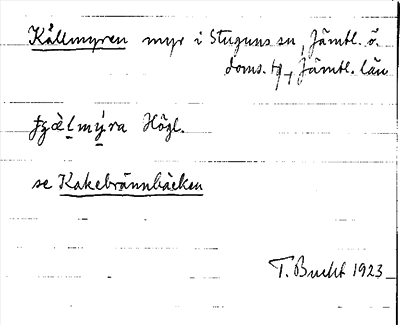 Källmyren myr i Stuguns sn, Jämtl. ö.
doms. tg, Jämtl. län
se Kakebrännbäcken
T. Bucht 1923